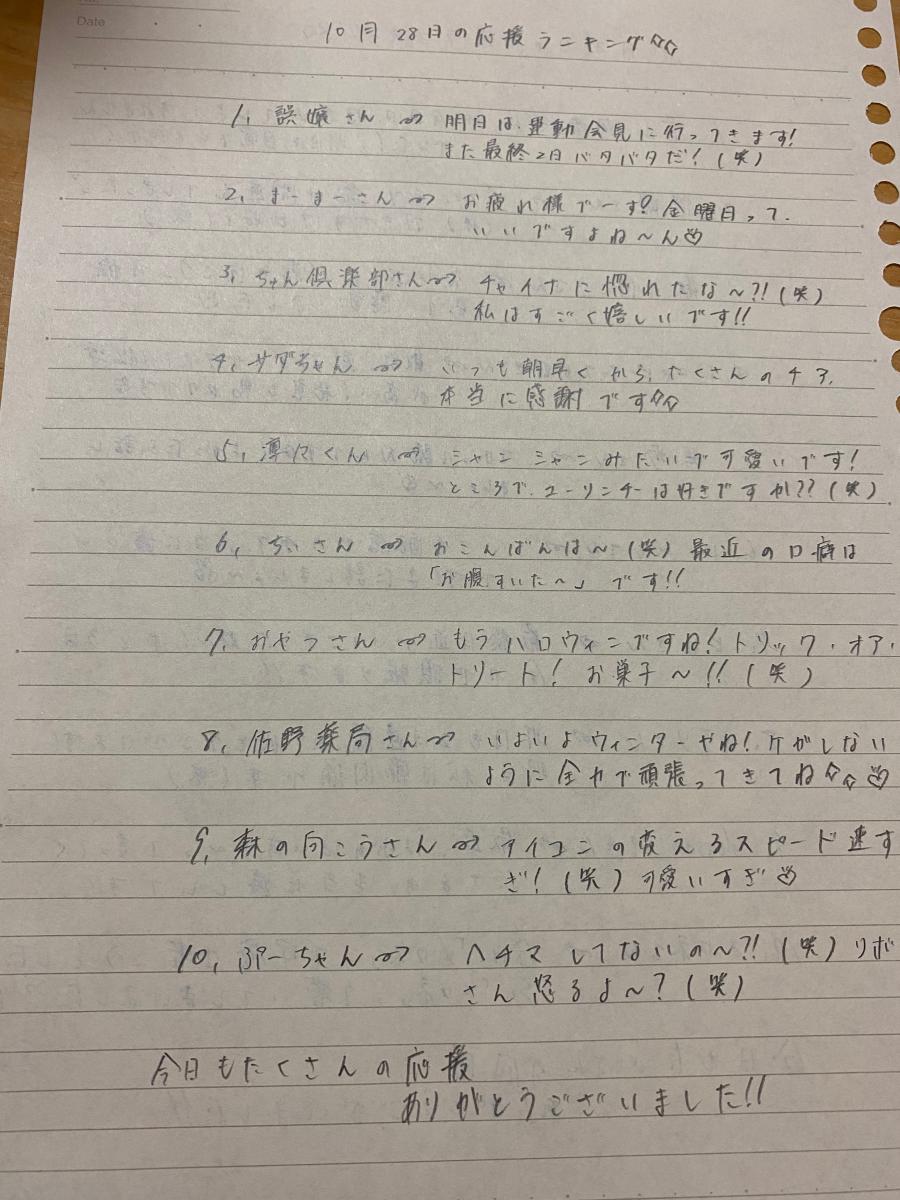 Date
10月28日の応援ランキング☆☆
1, 誤嬢さん ⇝ 明日は、運動会見に行ってきます!
また最終2日バタバタだ!(笑)
2, まーまーさん ⇝ お疲れ様でーす♡金曜日って、
いいですよね〜ん♡
3, ちゃん倶楽部さん⇝ チャイナに惚れたな〜?!(笑)
私はすごく嬉しいです!!
4, サダちゃん ⇝ いつも朝早くから、たくさんのチア、
本当に感謝です☆☆
5, 凛々くん ⇝ シャンシャンみたいで可愛いです!
ところで、ユーリンチーは好きですか??(笑)
6, ちぃさん ⇝ おこんばんは〜(笑) 最近の口癖は
「お腹すいた〜」です!!
7, おやつさん ⇝ もうハロウィンですね!トリック・オア・
トリート! お菓子〜!!(笑)
8, 佐野薬局さん⇝ いよいよウィンターやね!ケガしない
ように全力で頑張ってきてね☆☆♡
9, 森の向こうさん ⇝ アイコンの変えるスピード速す
ぎ!(笑)可愛いすぎ♡
10, ぷーちゃん⇝ ヘチマしてないの〜?!(笑)リボ
さん怒るよ〜?(笑)
今日もたくさんの応援
ありがとうございました!!